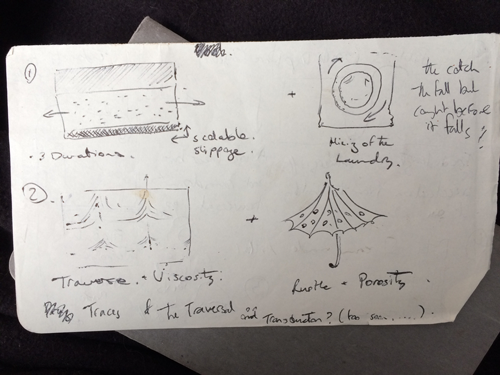 1
+
the catch
the fall but
caught before
it falls
scalable
slippage.
. 3 Durations.
Mixing of the
Laundry.
2
+
Traverse. + Viscosity.
= Porosity.
Traces of the Traversal and ? (too soon.....).